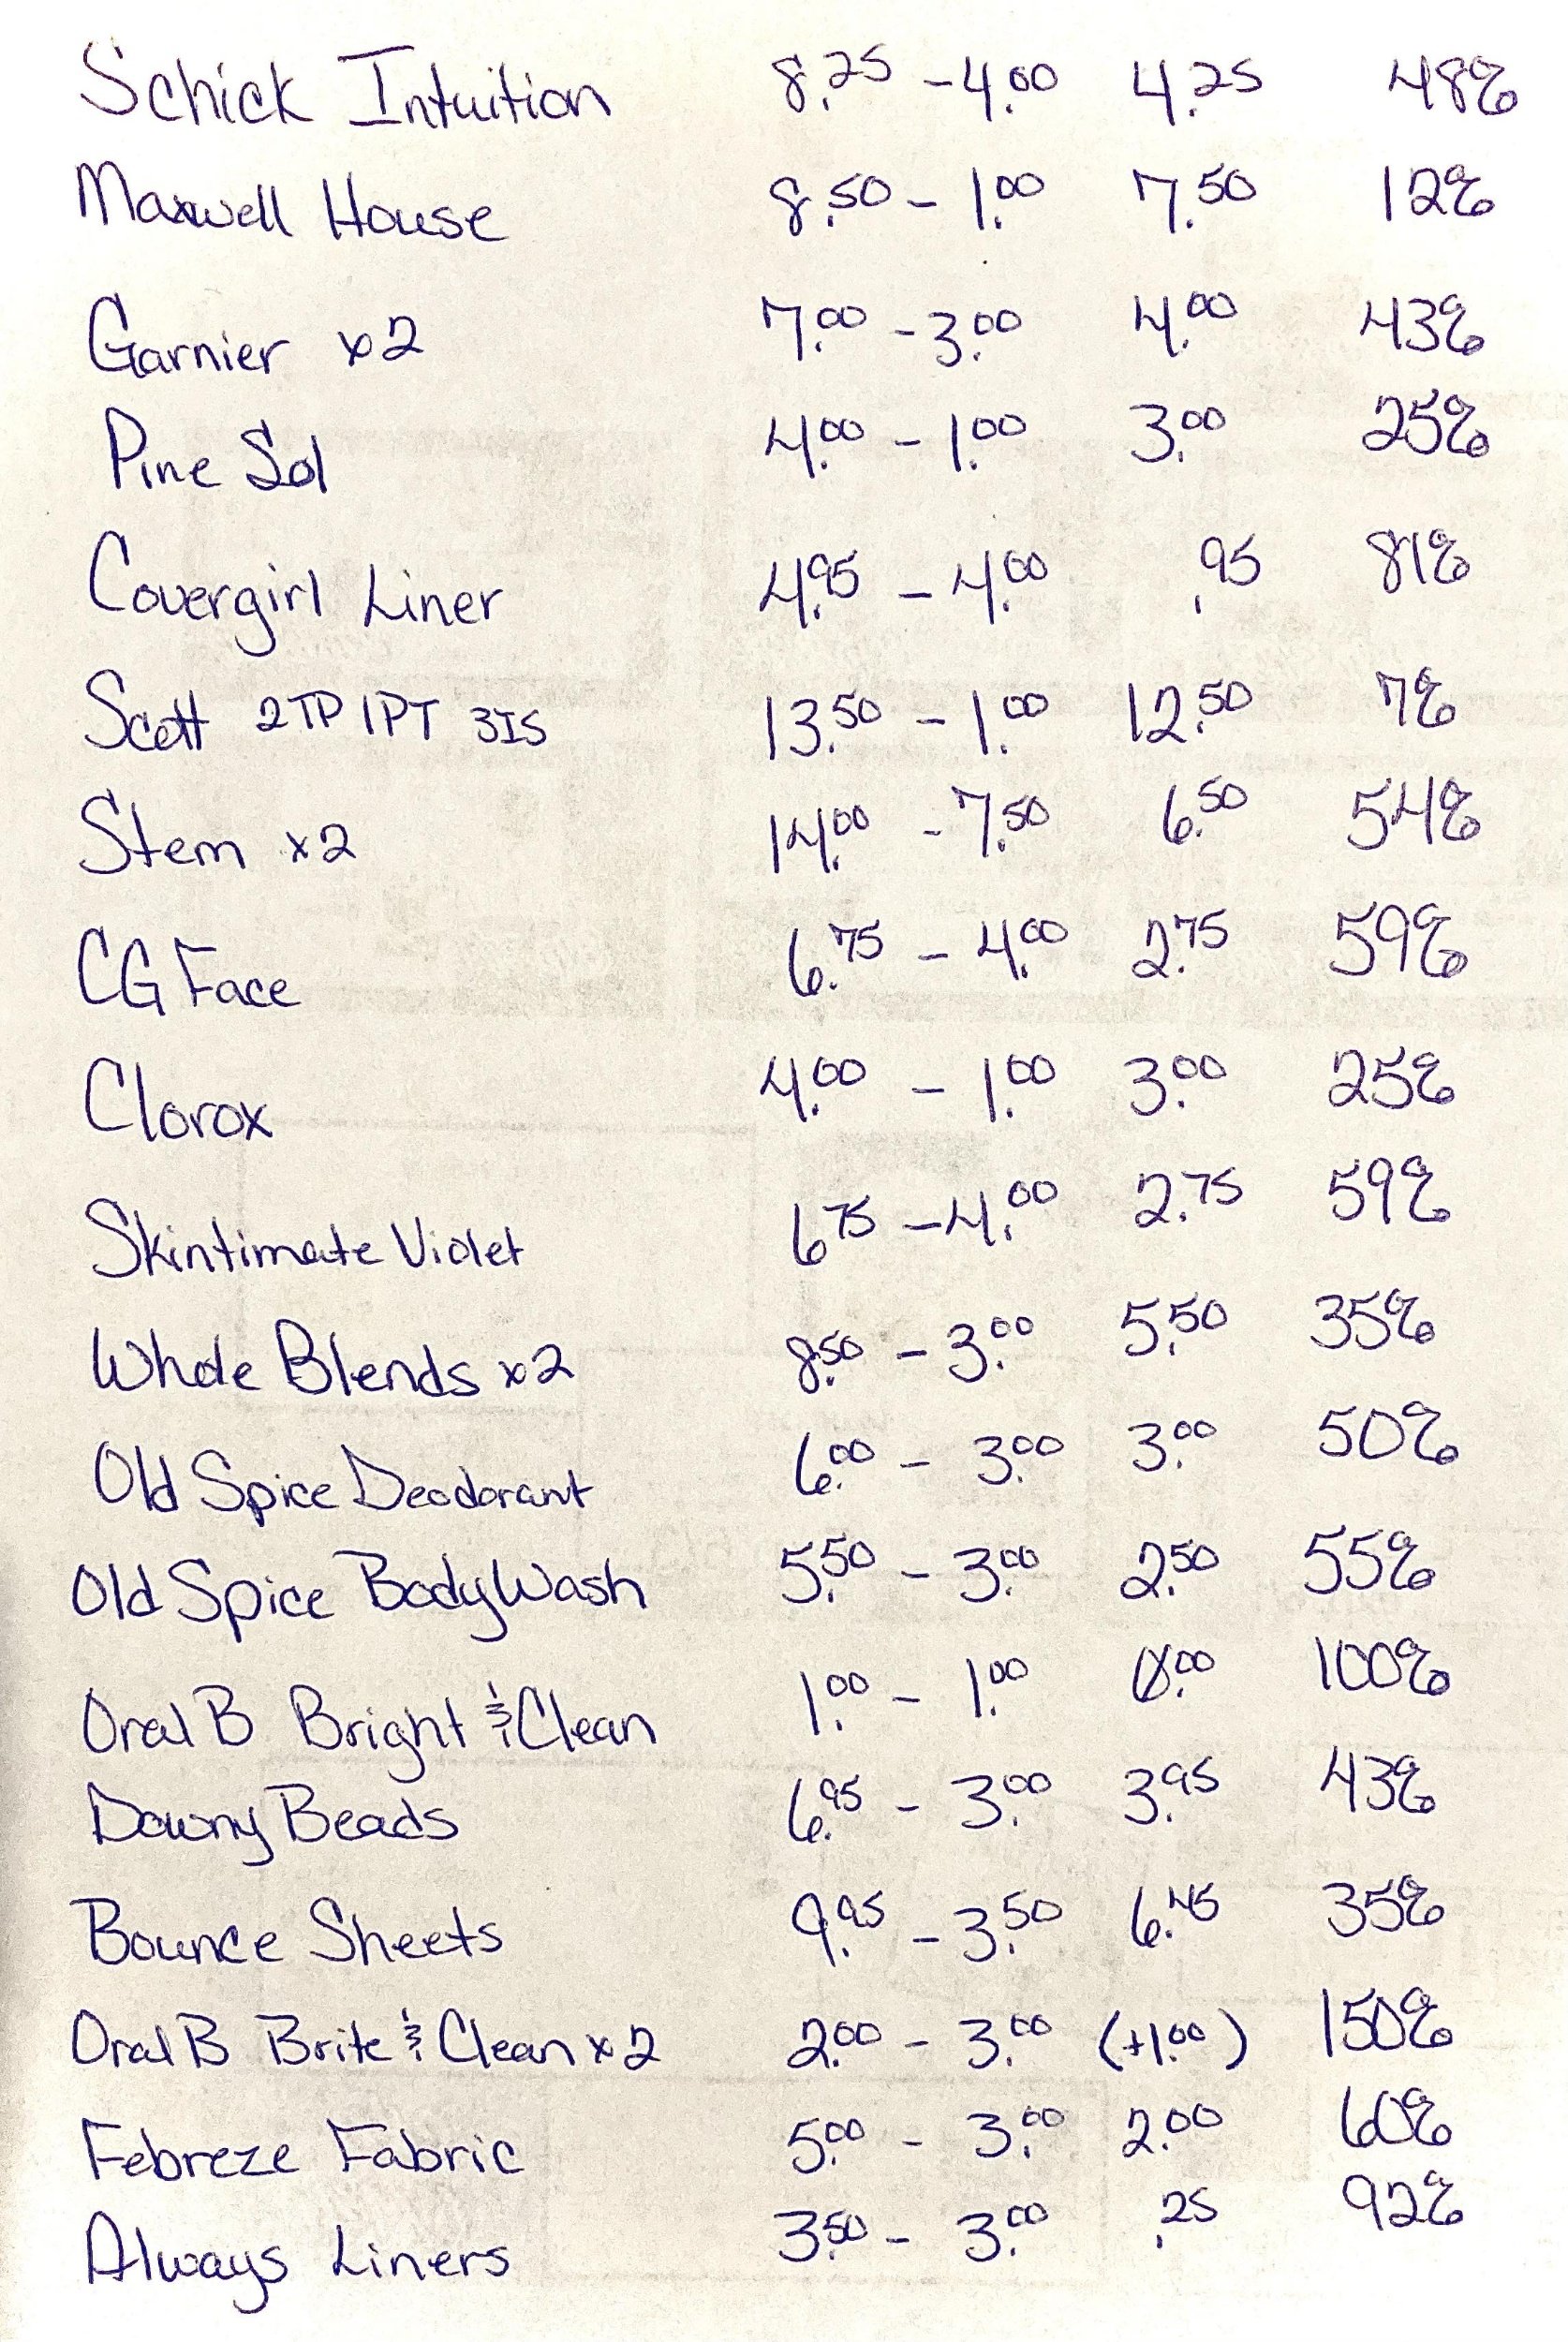 Schick Intuition 8.25 - 4.00 4.25 48%
Maxwell House 8.50 - 1.00 7.50 12%
Garnier x2 7.00 - 3.00 4.00 43%
Pine Sol 4.00 - 1.00 3.00 25%
Covergirl Liner 4.95 - 4.00 .95 81%
Scott 2TP 1PT 3IS 13.50 - 1.00 12.50 7%
Stem x2 14.00 - 7.50 6.50 54%
CG Face 6.75 - 4.00 2.75 59%
Clorox 4.00 - 1.00 3.00 25%
Skintimate Violet 6.75 - 4.00 2.75 59%
Whole Blends x2 8.50 - 3.00 5.50 35%
Old Spice Deodorant 6.00 - 3.00 3.00 50%
Old Spice Body Wash 5.50 - 3.00 2.50 55%
Oral B Bright & Clean 1.00 - 1.00 0.00 100%
Downy Beads 6.95 - 3.00 3.95 43%
Bounce Sheets 9.95 - 3.50 6.45 35%
Oral B Brite & Clean x2 2.00 - 3.00 (+1.00) 150%
Febreze Fabric 5.00 - 3.00 2.00 60%
Always Liners 3.50 - 3.00 .25 92%